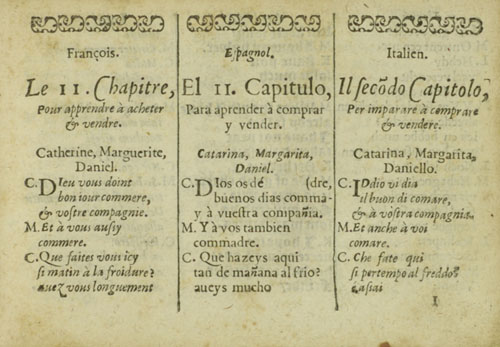 François.
Le II. Chapitre,
Pour apprendre à acheter
& vendre.
Catherine, Marguerite,
Daniel.
C. DIeu vous doint
bon iour commere,
& vostre compagnie.
M. Et à vous aussy
commere.
C. Que faites vous icy
si matin à la froidure?
auez vous longuement
Espagnol.
El II. Capitulo,
Para aprender à comprar
y vender.
Catarina, Margarita,
Daniel.
C. DIos os dé (dre,
buenos dias comma-
y à vuestra compañia.
M. Y à vos tambien
commadre.
C. Que hazeys aqui
tan de mañana al frio?
aueys mucho
Italien.
Il secōdo Capitolo,
Per imparare à comprare
& vendere.
Catarina, Margarita,
Daniello.
C. IDdio vi dia
il buon di comare,
& à vostra compagnia.
M. Et anche à voi
comare.
C. Che fate qui
si per tempo al freddo?
I